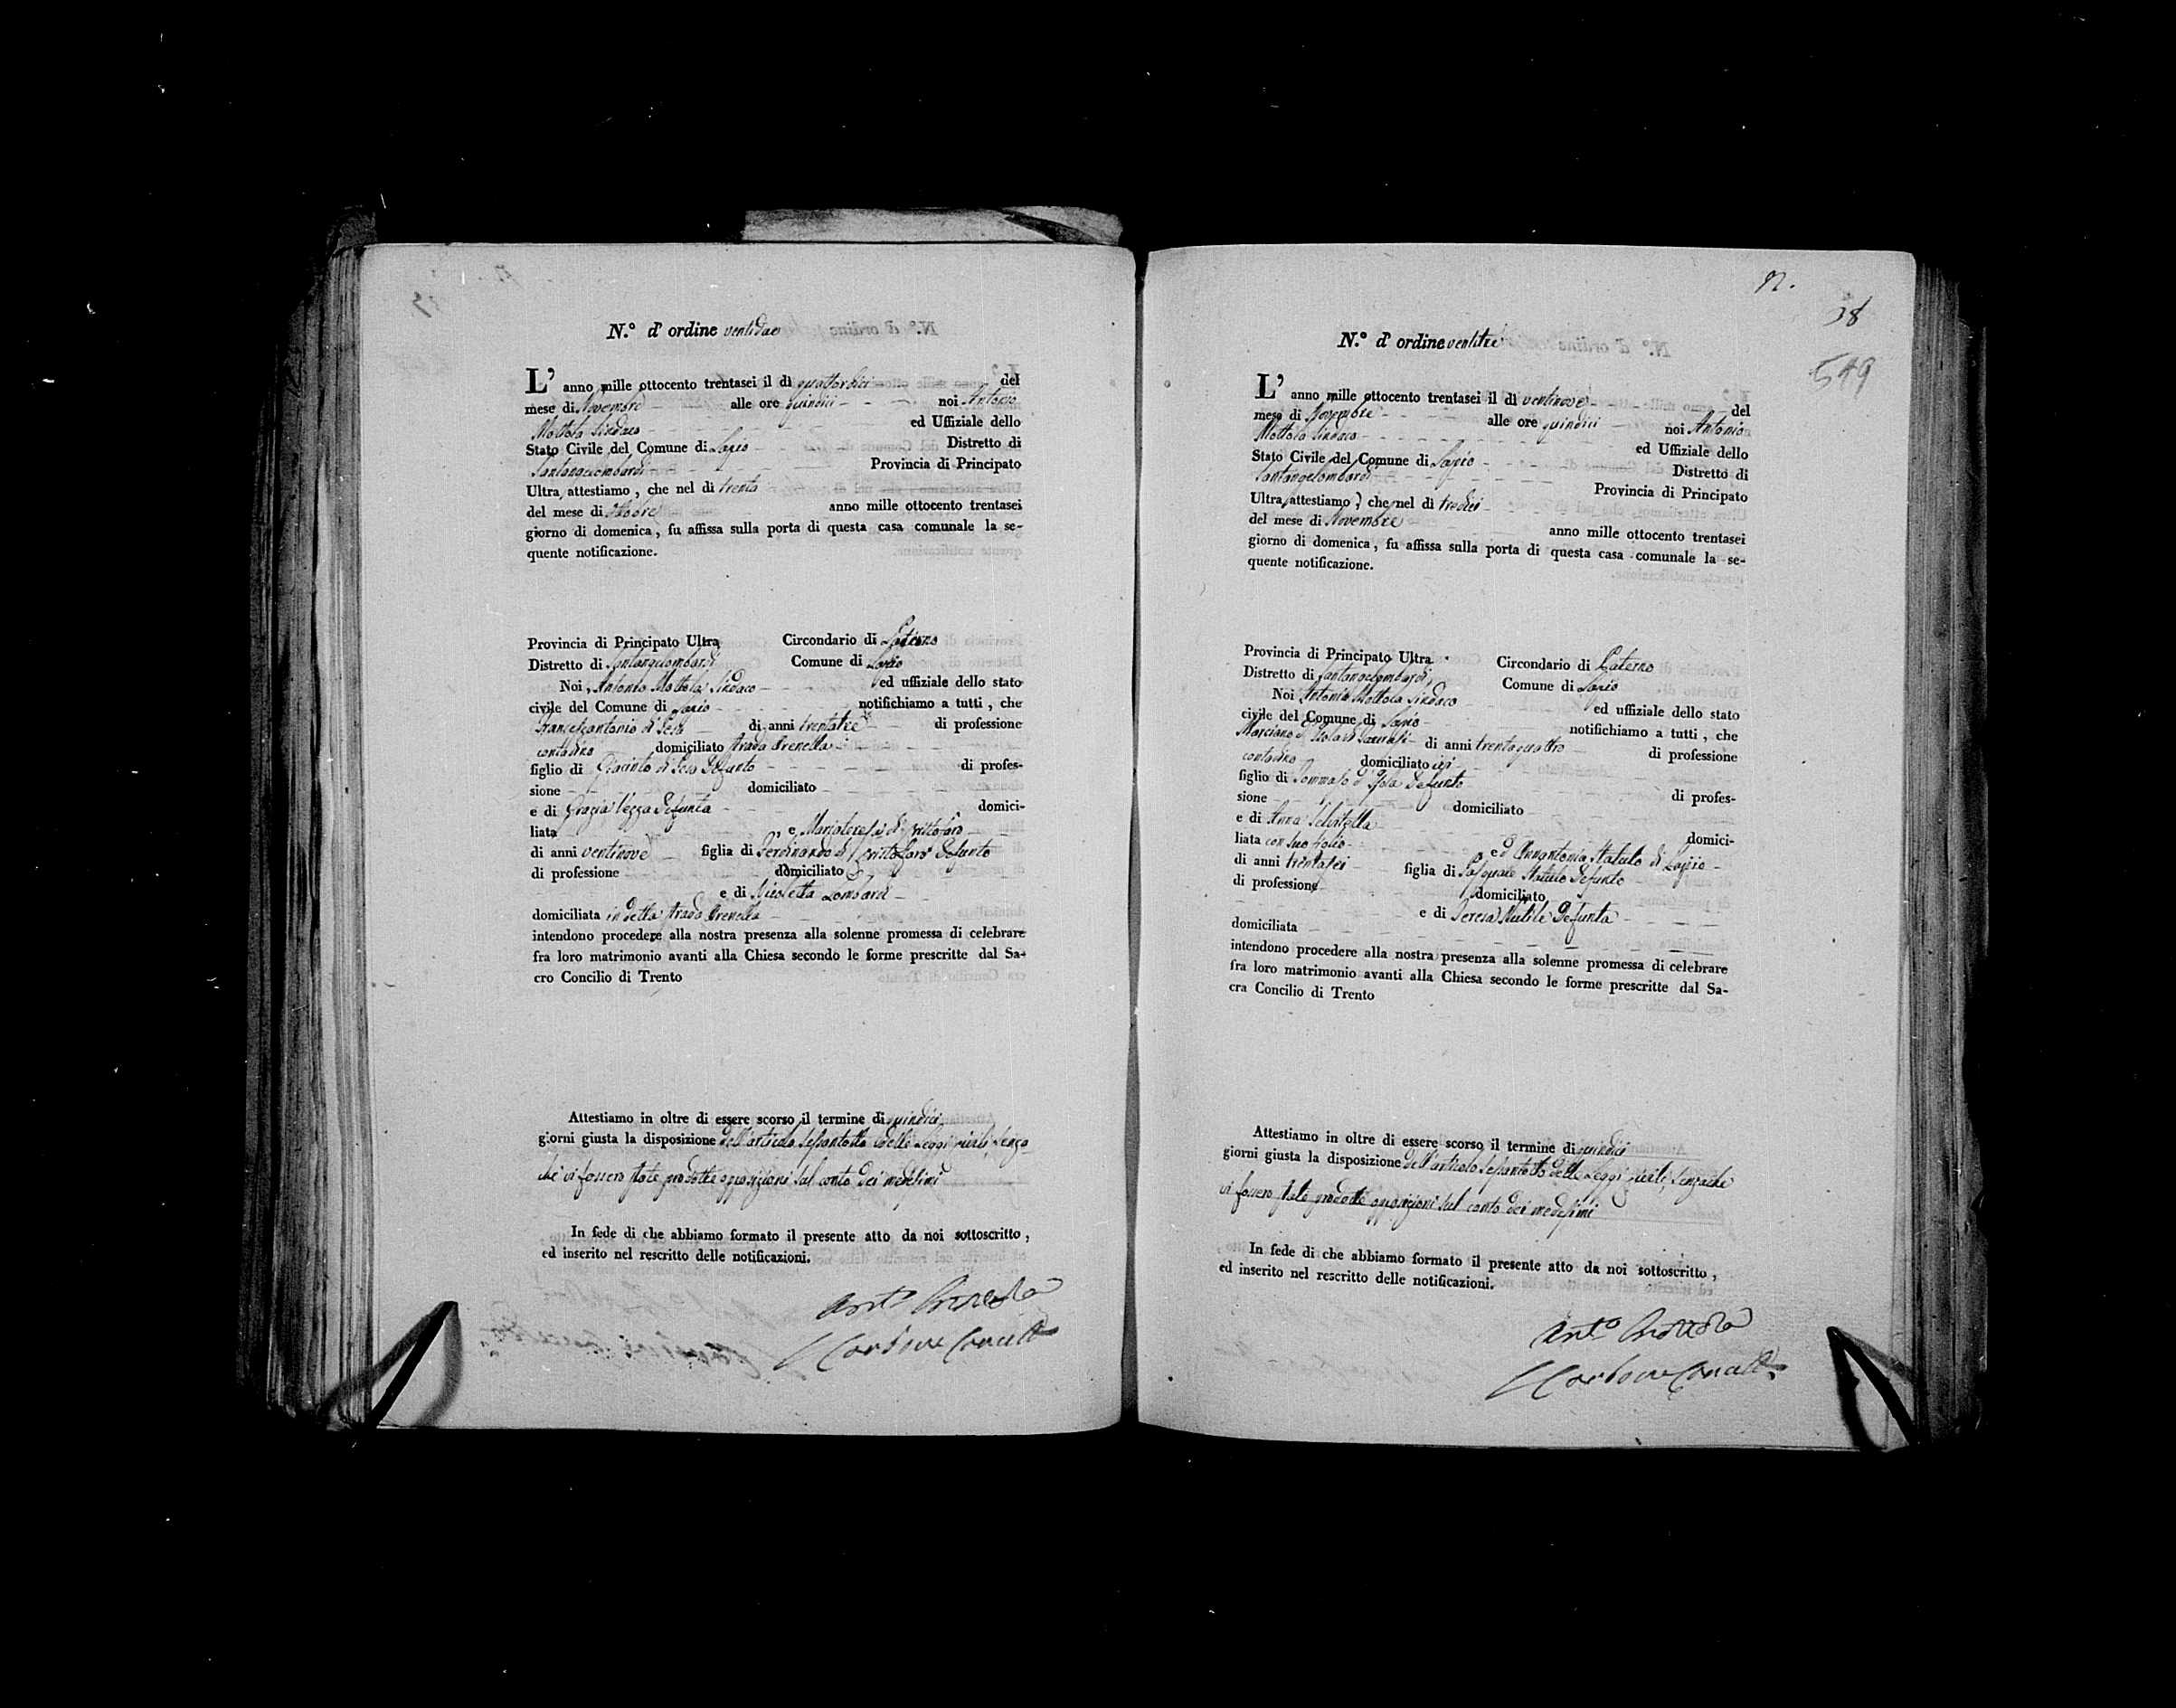 N.° d' ordine ventidue
L' anno mille ottocento trentasei il di quattordici del
mese di Novembre alle ore quindici noi Antonio
Mottola Sindaco ed Uffiziale dello
Stato Civile del Comune di Lapio Distretto di
Santangelombardi Provincia di Principato
Ultra, attestiamo, che nel di trenta
del mese di Ottobre anno mille ottocento trentasei
giorno di domenica, fu affissa sulla porta di questa casa comunale la se-
quente notificazione.
Provincia di Principato Ultra Circondario di Paterno
Distretto di Santangelombardi Comune di Lapio
Noi, Antonio Mottola Sindaco ed uffiziale dello stato
civile del Comune di Lapio notifichiamo a tutti, che
Francescantonio di Feso di anni trentatre di professione
contadino domiciliato strada Arenella
figlio di Giacinto di Feso Defunto di profes-
sione domiciliato
e di Grazia Vezza Defunta domici-
liata e Mariateresa di Cristofaro
di anni ventinove figlia di Ferdinando di Cristofaro Defunto
di professione domiciliato
e di Nicoletta Lombardi
domiciliata in detta strada Arenella
intendono procedere alla nostra presenza alla solenne promessa di celebrare
fra loro matrimonio avanti alla Chiesa secondo le forme prescritte dal Sa-
cro Concilio di Trento
Attestiamo in oltre di essere scorso il termine di quindici
giorni giusta la disposizione dell'articolo Sessantotto delle Leggi civili, senza
che vi fossero state prodotte opposizioni sul conto dei medesimi
In fede di che abbiamo formato il presente atto da noi sottoscritto,
ed inserito nel rescritto delle notificazioni.
Ant.° Mottola
n.
38
549
N.° d' ordine ventitre
L' anno mille ottocento trentasei il di ventinove del
mese di Novembre alle ore quindici noi Antonio
Mottola Sindaco ed Uffiziale dello
Stato Civile del Comune di Lapio Distretto di
Santangelombardi Provincia di Principato
Ultra, attestiamo, che nel di tredici
del mese di Novembre anno mille ottocento trentasei
giorno di domenica, fu affissa sulla porta di questa casa comunale la se-
quente notificazione.
Provincia di Principato Ultra Circondario di Paterno
Distretto di Santangelombardi Comune di Lapio
Noi Antonio Mottola Sindaco ed uffiziale dello stato
civile del Comune di Lapio notifichiamo a tutti, che
Marciano d'Isola di di anni trentaquattro di professione
contadino domiciliato ivi
figlio di Tommaso d'Isola Defunto di profes-
sione domiciliato
e di Anna Selvitella domici-
liata con suo figlio ed Annantonia Statuto di Lapio
di anni trentasei figlia di Pasquale Statuto Defunto
di professione domiciliato
e di Teresa Defunta
domiciliata
intendono procedere alla nostra presenza alla solenne promessa di celebrare
fra loro matrimonio avanti alla Chiesa secondo le forme prescritte dal Sa-
cra Concilio di Trento
Attestiamo in oltre di essere scorso il termine di quindici
giorni giusta la disposizione dell'articolo Sessantotto delle Leggi civili, senzache
vi fossero state prodotte opposizioni sul conto dei medesimi
In fede di che abbiamo formato il presente atto da noi sottoscritto,
ed inserito nel rescritto delle notificazioni.
Ant.° Mottola